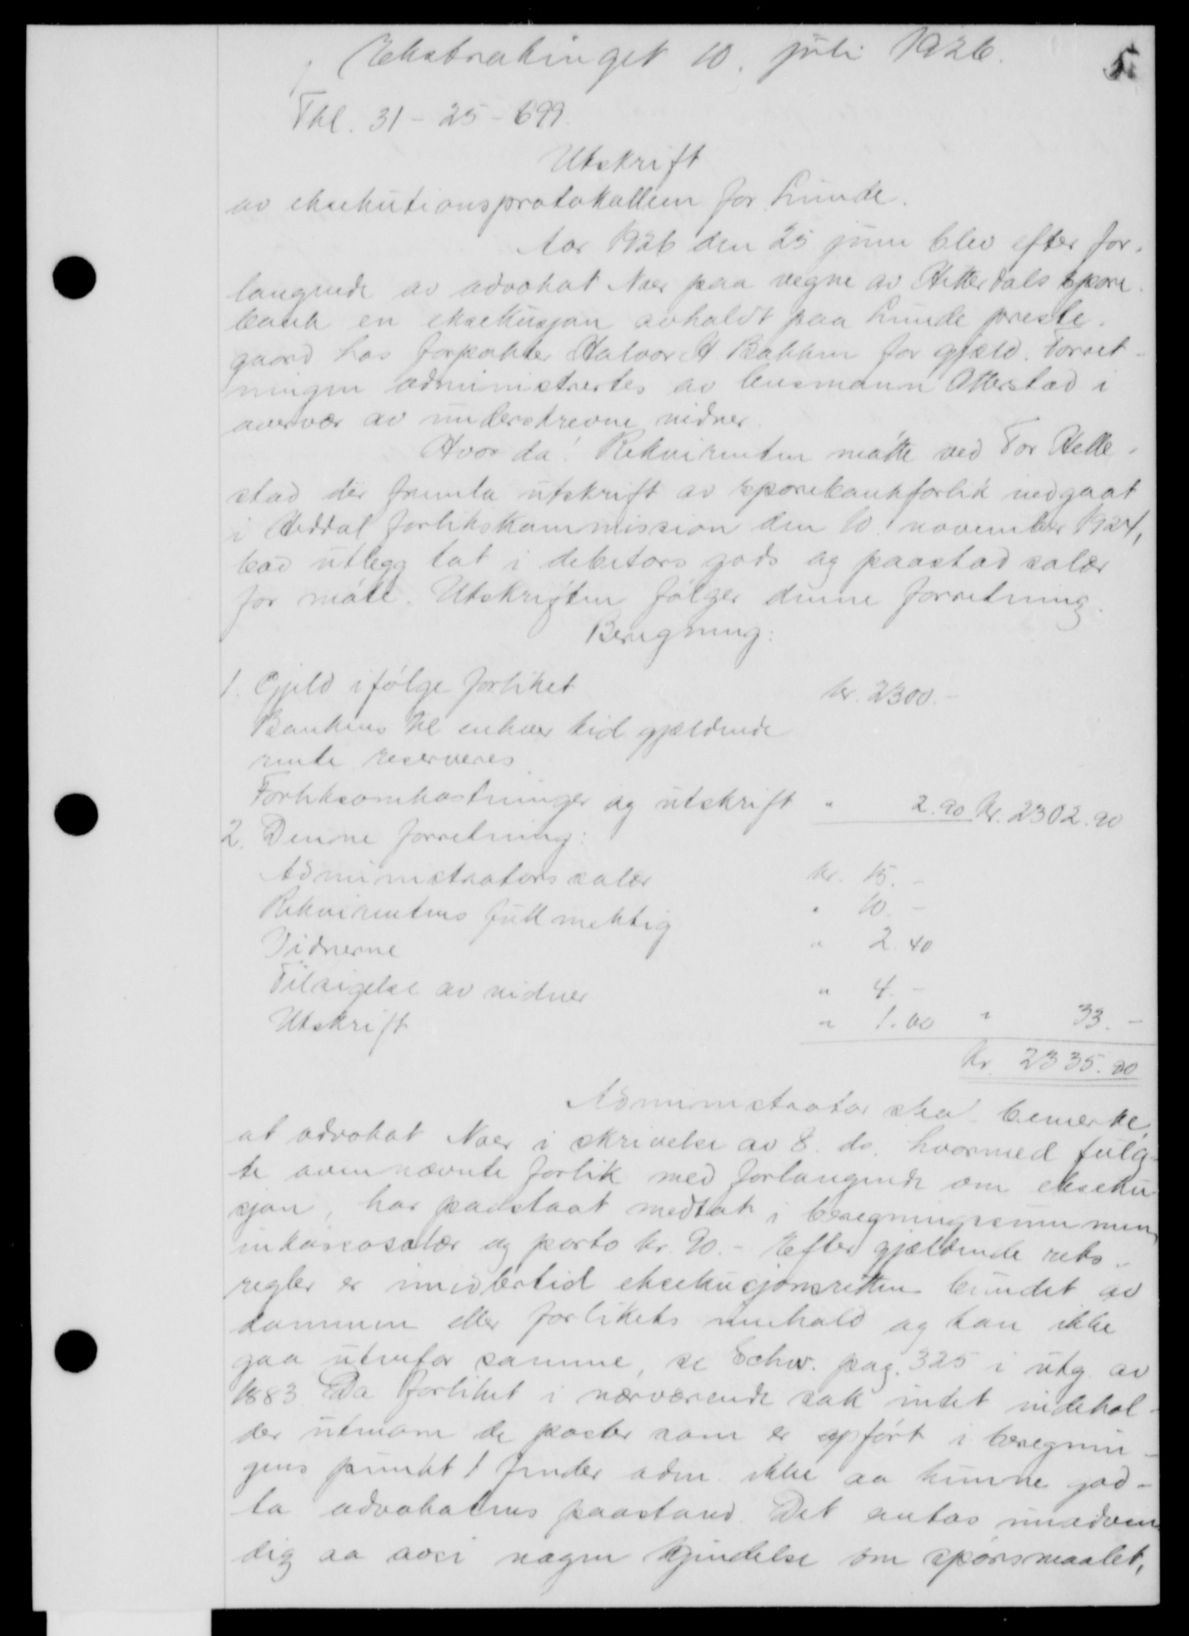 Ekstratinget 10. juli 1926. 5
Thl. 31-25-699.
Utskrift
av eksekutionsprotokollen for Lunde.
Aar 1926 den 25 juni blev efter for-
langende av advokat Næs paa vegne av Hitterdals spare-
bank en eksekusjon avholdt paa Lunde preste-
gaard hos forpakter Halvor H. Bakken for gjeld. Forret-
ningen administrertes av lensmann Otterstad i
overvær av underskrevne vidner.
Hvor da: Rekvirenten møtte ved Tor Helle-
stad der fremla utskrift av sparebankforlik inngaat
i Heddal forlikskommission den 10. november 1924,
bad utlegg tat i debitors gods og paastod salær
for møte. Utskriften følger denne forretning.
Beregning:
1. Gjeld ifølge forliket kr. 2300.-
Bankens til enhver tid gjældende
rente reserveres
Forliksomkostninger og utskrift " 2.90 Kr. 2302.90
2. Denne forretning:
Administrators salær kr. 15.-
Rekvirentens fuldmektig " 10.-
Vidnerne " 2.40
Tilsigelse av vidner " 4.-
Utskrift " 1.60 " 33.-
Kr. 2335.90
Administrator skal bemerke,
at advokat Næs i skrivelse av 8. ds. hvormed fulg-
te ovennævnte forlik med forlangende om ekseku-
sjon, har paastaat medtat i beregningssummen
inkassosalær og porto kr. 90.- Efter gjældende rets-
regler er imidlertid eksekusjonsretten bundet av
dommen eller forlikets innhold og kan ikke
gaa utenfor samme, se Schw. pag. 325 i utg. av
1883. Da forliket i nærværende sak intet indehol-
der utenom de poster som er opført i beregnin-
gens punkt 1 finder adm. ikke aa kunne god-
ta advokatens paastand. Det antas unødven
dig aa avsi nogen kjendelse om spørsmaalet,